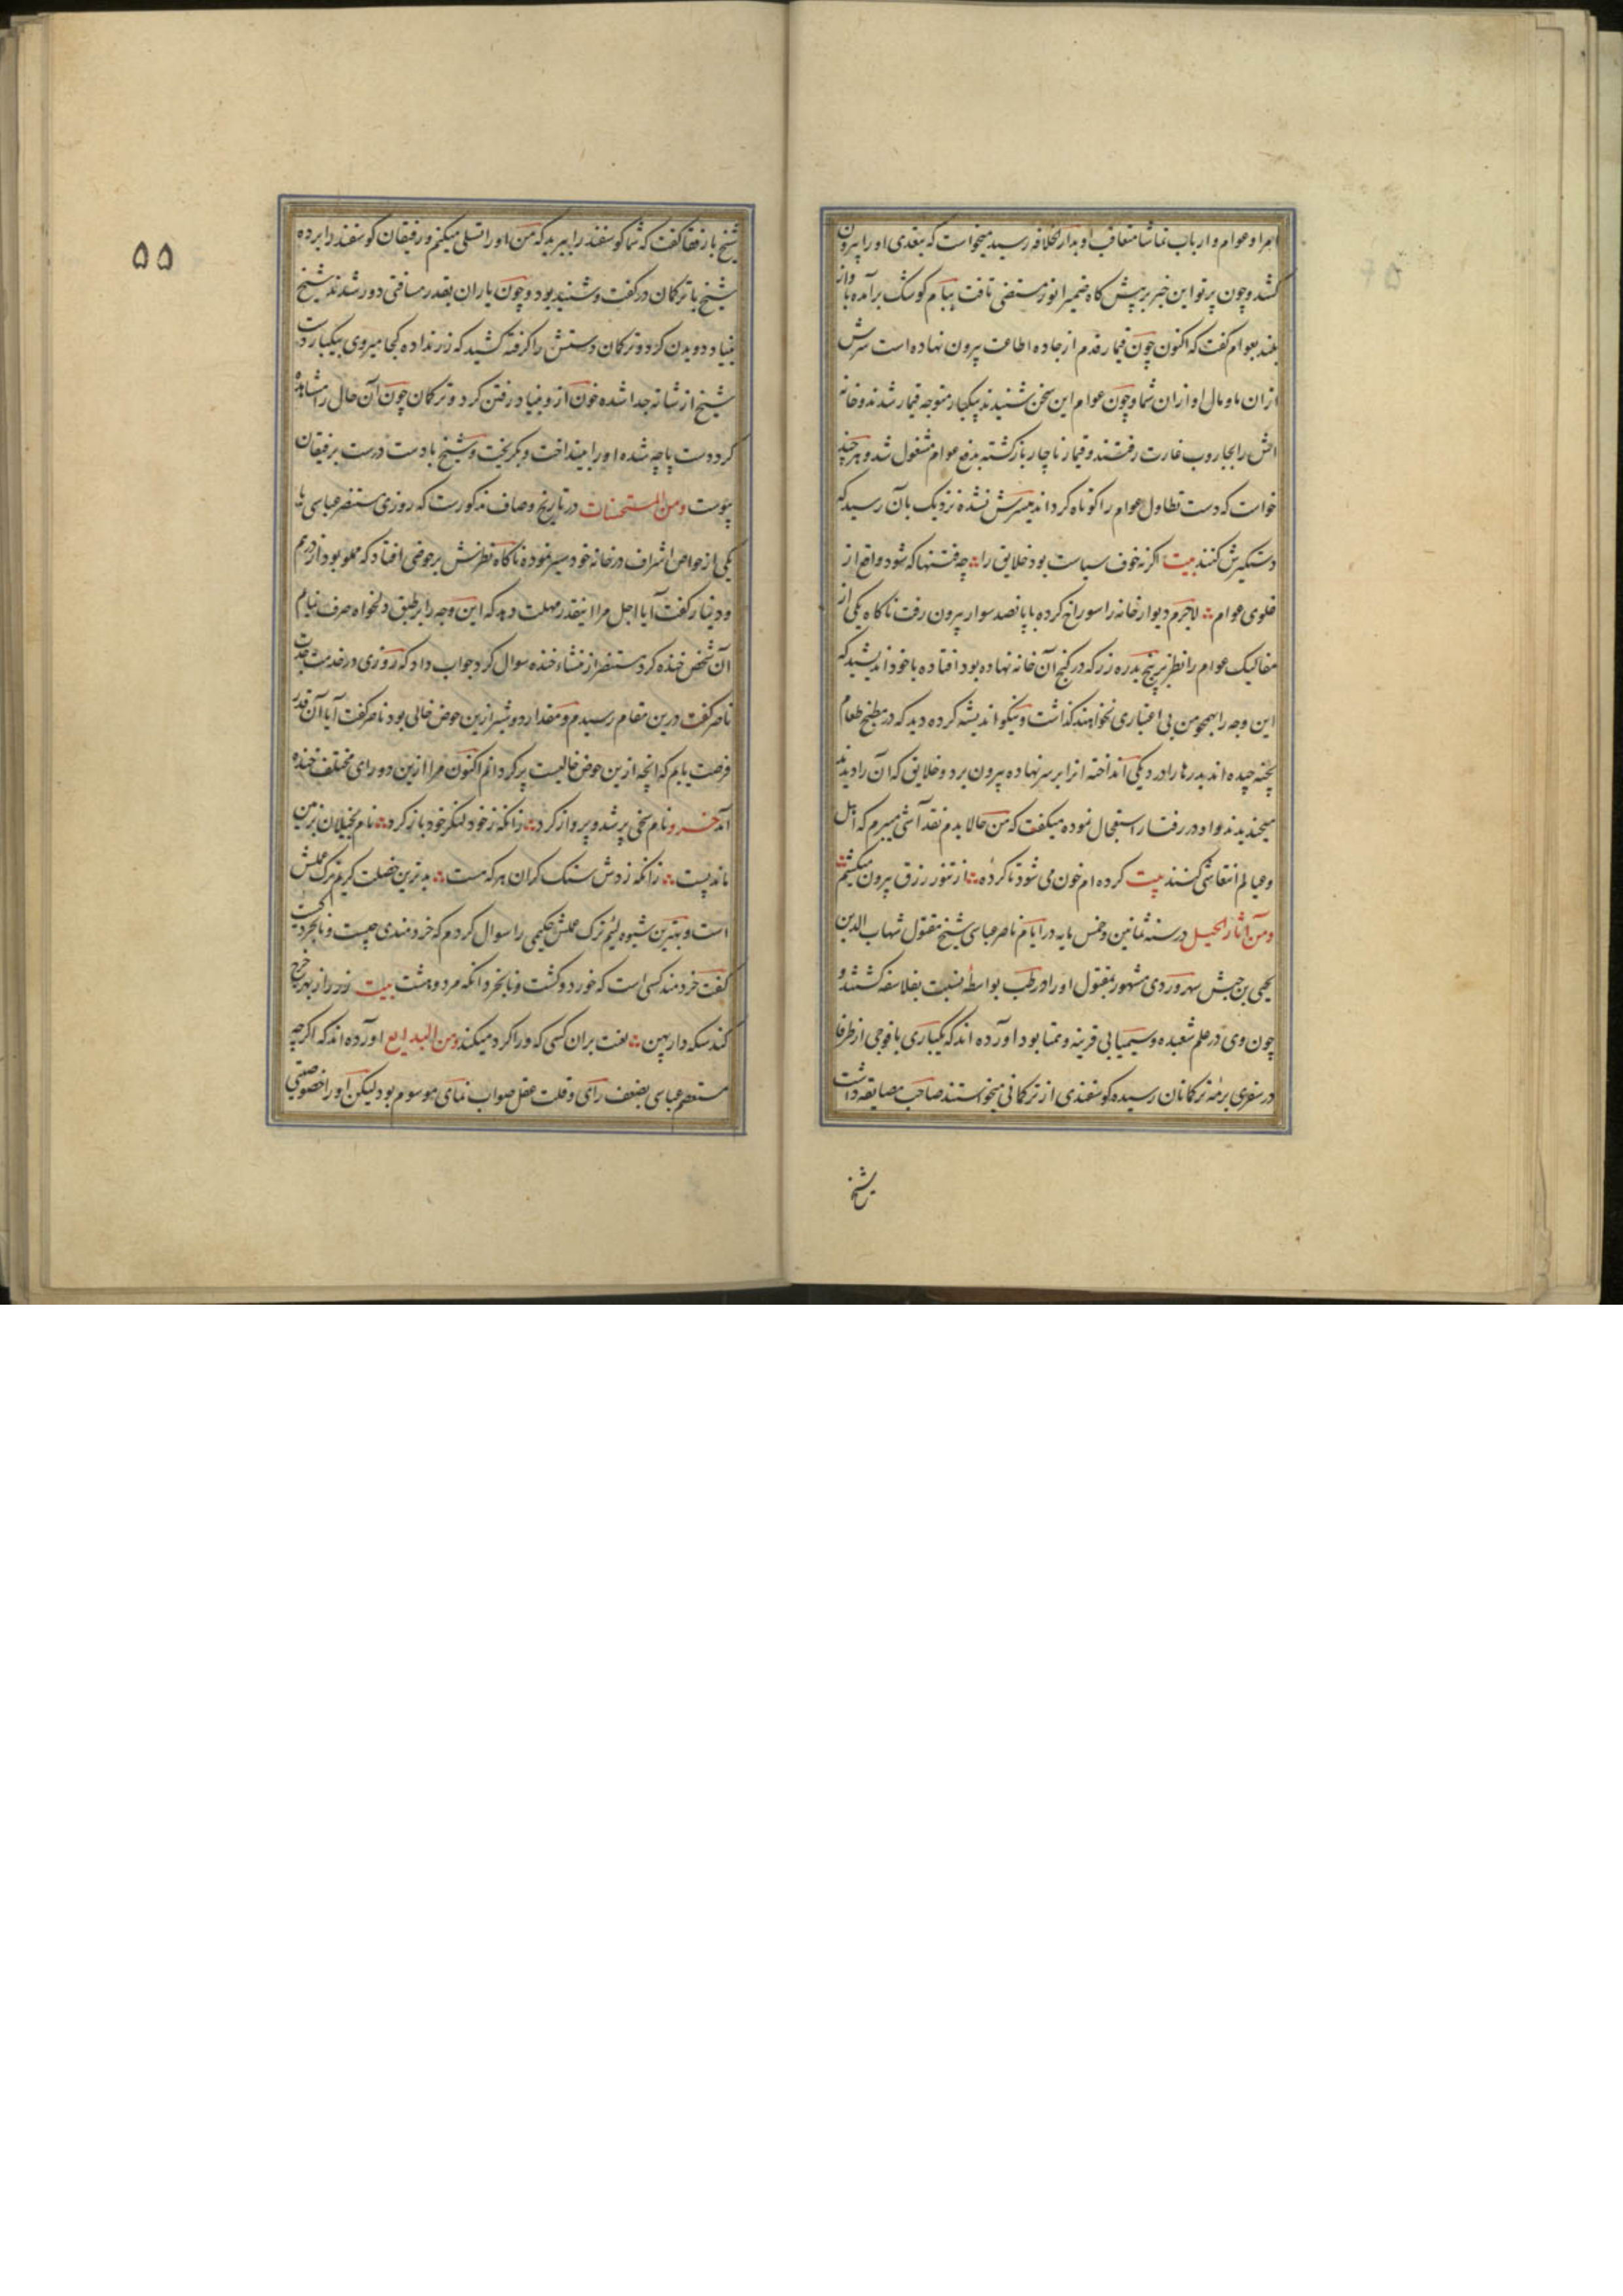 امرا و عوام و ارباب تماشا متعاقب او بدار الخلافه رسید میخواست که بتعدی او را بیرون
کشد و چون پرتو این خبر بر پیش کاه ضمیر انور مستضی تافت ببام کوشک برآمده بآواز
بلند بعوام گفت که اکنون چون قیماز قدم از جاده اطاعت بیرون نهاده است سرش
از ان ما و مال او از ان شما و چون عوام این سخن شنیدند بیکبار متوجه قیماز شدند و خانه
اش را بجاروب غارت رفتند و قیماز ناچار بازکشته بدفع عوام مشغول شد و هر چند
خواست که دست تطاول عوام را کوتاه کرداند میسرش نشده نزدیک بآن رسید که
دستکیرش کنند بیت اکر نه خوف سیاست بود خلایق را چه فتنها که شود واقع از
غلوی عوام لاجرم دیوار خانه را سوراخ کرده با پانصد سوار بیرون رفت ناکاه یکی از
مفالیک عوام را نظر بر پنج بدره زر که در کنج آن خانه نهاده بود افتاده با خود اندیشید که
این وجه را بهمچو من بی اعتباری نخواهند کذاشت و نیکو اندیشه کرده دید که در مطبخ طعام
پخته چیده اند بدرها را در دیکی انداخته انرا بر سر نهاده بیرون برد و خلایق که آن را دیدند
میخندیدند و او در رفتار استعجال نموده میکفت که من حالا بدم نقد آشی میبرم که اهل
و عیالم انتعاشی کنند بیت کرده ام خون می شود تا کرده از تنور رزق بیرون میکشم
ومن آثار الحیل در سنه ثمانین و خمس مایه در ایام ناصر عباسی شیخ مقتول شهاب الدین
یحیی بن حبش سهروردی مشهور بمقتول او را در حلب بواسطه نسبت بفلاسفه کشتند و
چون وی در علم شعبده و سیمیا بی قرینه و همتا بود آورده اند که یکباری با فوجی از ظرفا
در سفری برمه ترکمانان رسیده کوسفندی از ترکمانی میخواستند صاحب مضایقه داشت
شیخ
۵۵
شیخ با رفقا کفت که شما کوسفند را ببرید که من او را تسلی میکنم و رفیقان کوسفند را برده
شیخ با ترکمان در کفت و شنید بود و چون یاران بقدر مسافتی دور شدند شیخ
بنیاد دویدن کرد و ترکمان دستش را کرفته کشید که زر نداده کجا میروی بیکبار دست
شیخ از شانه جدا شده خون از و بنیاد رفتن کرد و ترکمان چون آن حال را مشاهده
کرد دست پاچه شده او را بینداخت و بکریخت و شیخ با دست درست برفیقان
پیوست ومن المستحسنات در تاریخ وصاف مذکورست که روزی مستنصر عباسی با
یکی از خواص اشراف در خانه خود سیر نموده ناکاه نظرش بر حوضی افتاد که مملو بود از درهم
و دینار کفت آیا اجل مرا اینقدر مهلت دهد که این وجه را بر طبق دلخواه صرف نمایم
آن شخص خنده کرد مستنصر از منشاء خنده سوال کرد جواب داد که روزی در خدمت جدت
ناصر کفت درین مقام رسیدم و مقدار دو شبر ازین حوض خالی بود ناصر کفت آیا آن قدر
فرصت یابم که انچه ازین حوض خالیست پر کردانم اکنون مرا ازین دو رای مختلف خنده
آمد خسرو نام سخی پر شد و پرواز کرد زانکه ز خود لنکر خود باز کرد نام بخیلان بزمین
ماند پست زانکه ز دش سنک کران هر که هست بدترین خصلت کریم ترک عملش
است و بهترین شیوه لئیم ترک عملش حکیمی را سوال کردم که خردمندی چیست و نابخرد کیست
کفت خردمند کسی است که خورد و کشت و نابخرد انکه مرد و هشت بیت زر را ز بهر خرج
کند سکه دار بین لعنت بران کسی که ورا کرد میکند ومن البدایع آورده اند که اکرچه
مستعصم عباسی بضعف رای و قلت عقل صواب نمای موسوم بود لیکن او را خصوصیتی